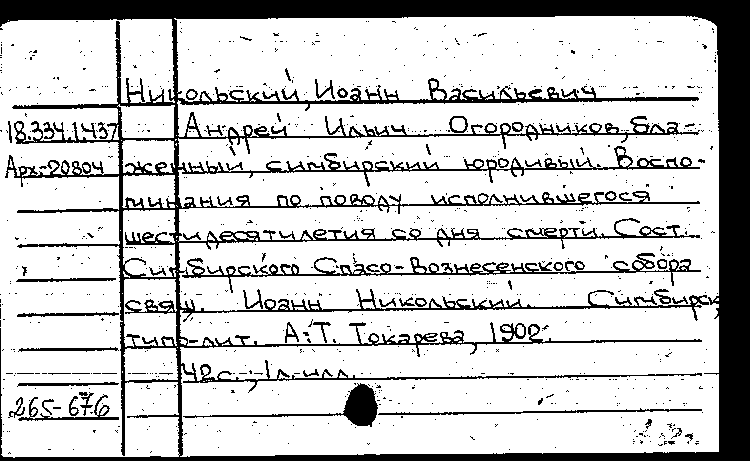 Никольский, Иоанн Васильевич
18.334.1.437 Андрей Ильич Огородников, бла-
Арх-20804 женный, симбирский юродивый. Воспо-
минания по поводу исполнившегося
шестидесятилетия со дня смерти. Сост.
Симбирского Спасо-Вознесенского собора
свящ. Иоанн Никольский. Симбирск,
типо-лит. А.Т. Токарева, 1902.
42с.; 1л.илл.
265-676